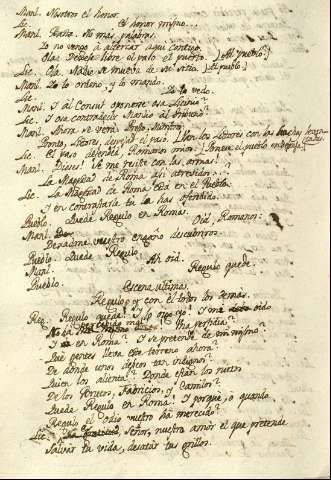 Manl. Nuestro el honor.
Lic. El honor mismo...
Manl. Basta. No mas palabras.
Yo no vengo à altercar aqui contigo.
Ola. Dexese libre el paso el puerto. (Al pueblo.)
Lic. Ola. Nadie se mueva de su sitio. (Al pueblo.)
Manl. Yo lo ordeno, y lo mando.
Lic. Yo lo vedo.
Manl. Y al Consul oponerse osa Licinio?
Lic. Y osa contradecir Manlio al Tribuno?
Manl. Ahora se verà. Presto. Ministros,
Pronto, Lictores, despejad el paso. Los Lictores con las hachas
Lic. El paso defended, Romanos mios. Ponese el pueblo en defensa.
Manl. Dioses! Se me resiste con las armas!
La Magestad de Roma asi atrevidos...
Lic. La Magestad de Roma està en el Pueblo:
Y en contrastarla tu la has ofendido.
Pueblo. Quede Regulo en Roma.
Manl. Oid, Romanos:
Dexadme vuestro engaño descubriros.
Pueblo. Quede Regulo.
Manl. Ah oid.
Pueblo. Regulo quede.
Escena ultima.
Regulo, y con èl todos los demas.
Reg. Regulo quede! Y lo oigo yo! Y
perfidia?
Y en Roma? Y se pretende de mi mismo?
Què gentes lleva este terreno ahora?
De donde unos deseos tan indignos?
Quien los alienta? Donde estàn los nietos
De los Brutos, Fabricios, y Camilos?
Quede Regulo en Roma! Y porque, ò quando
Regulo el odio vuestro ha merecido?
Lic. Señor, nuestro amor el que pretende
Salvar tu vida, desatar tus grillos.